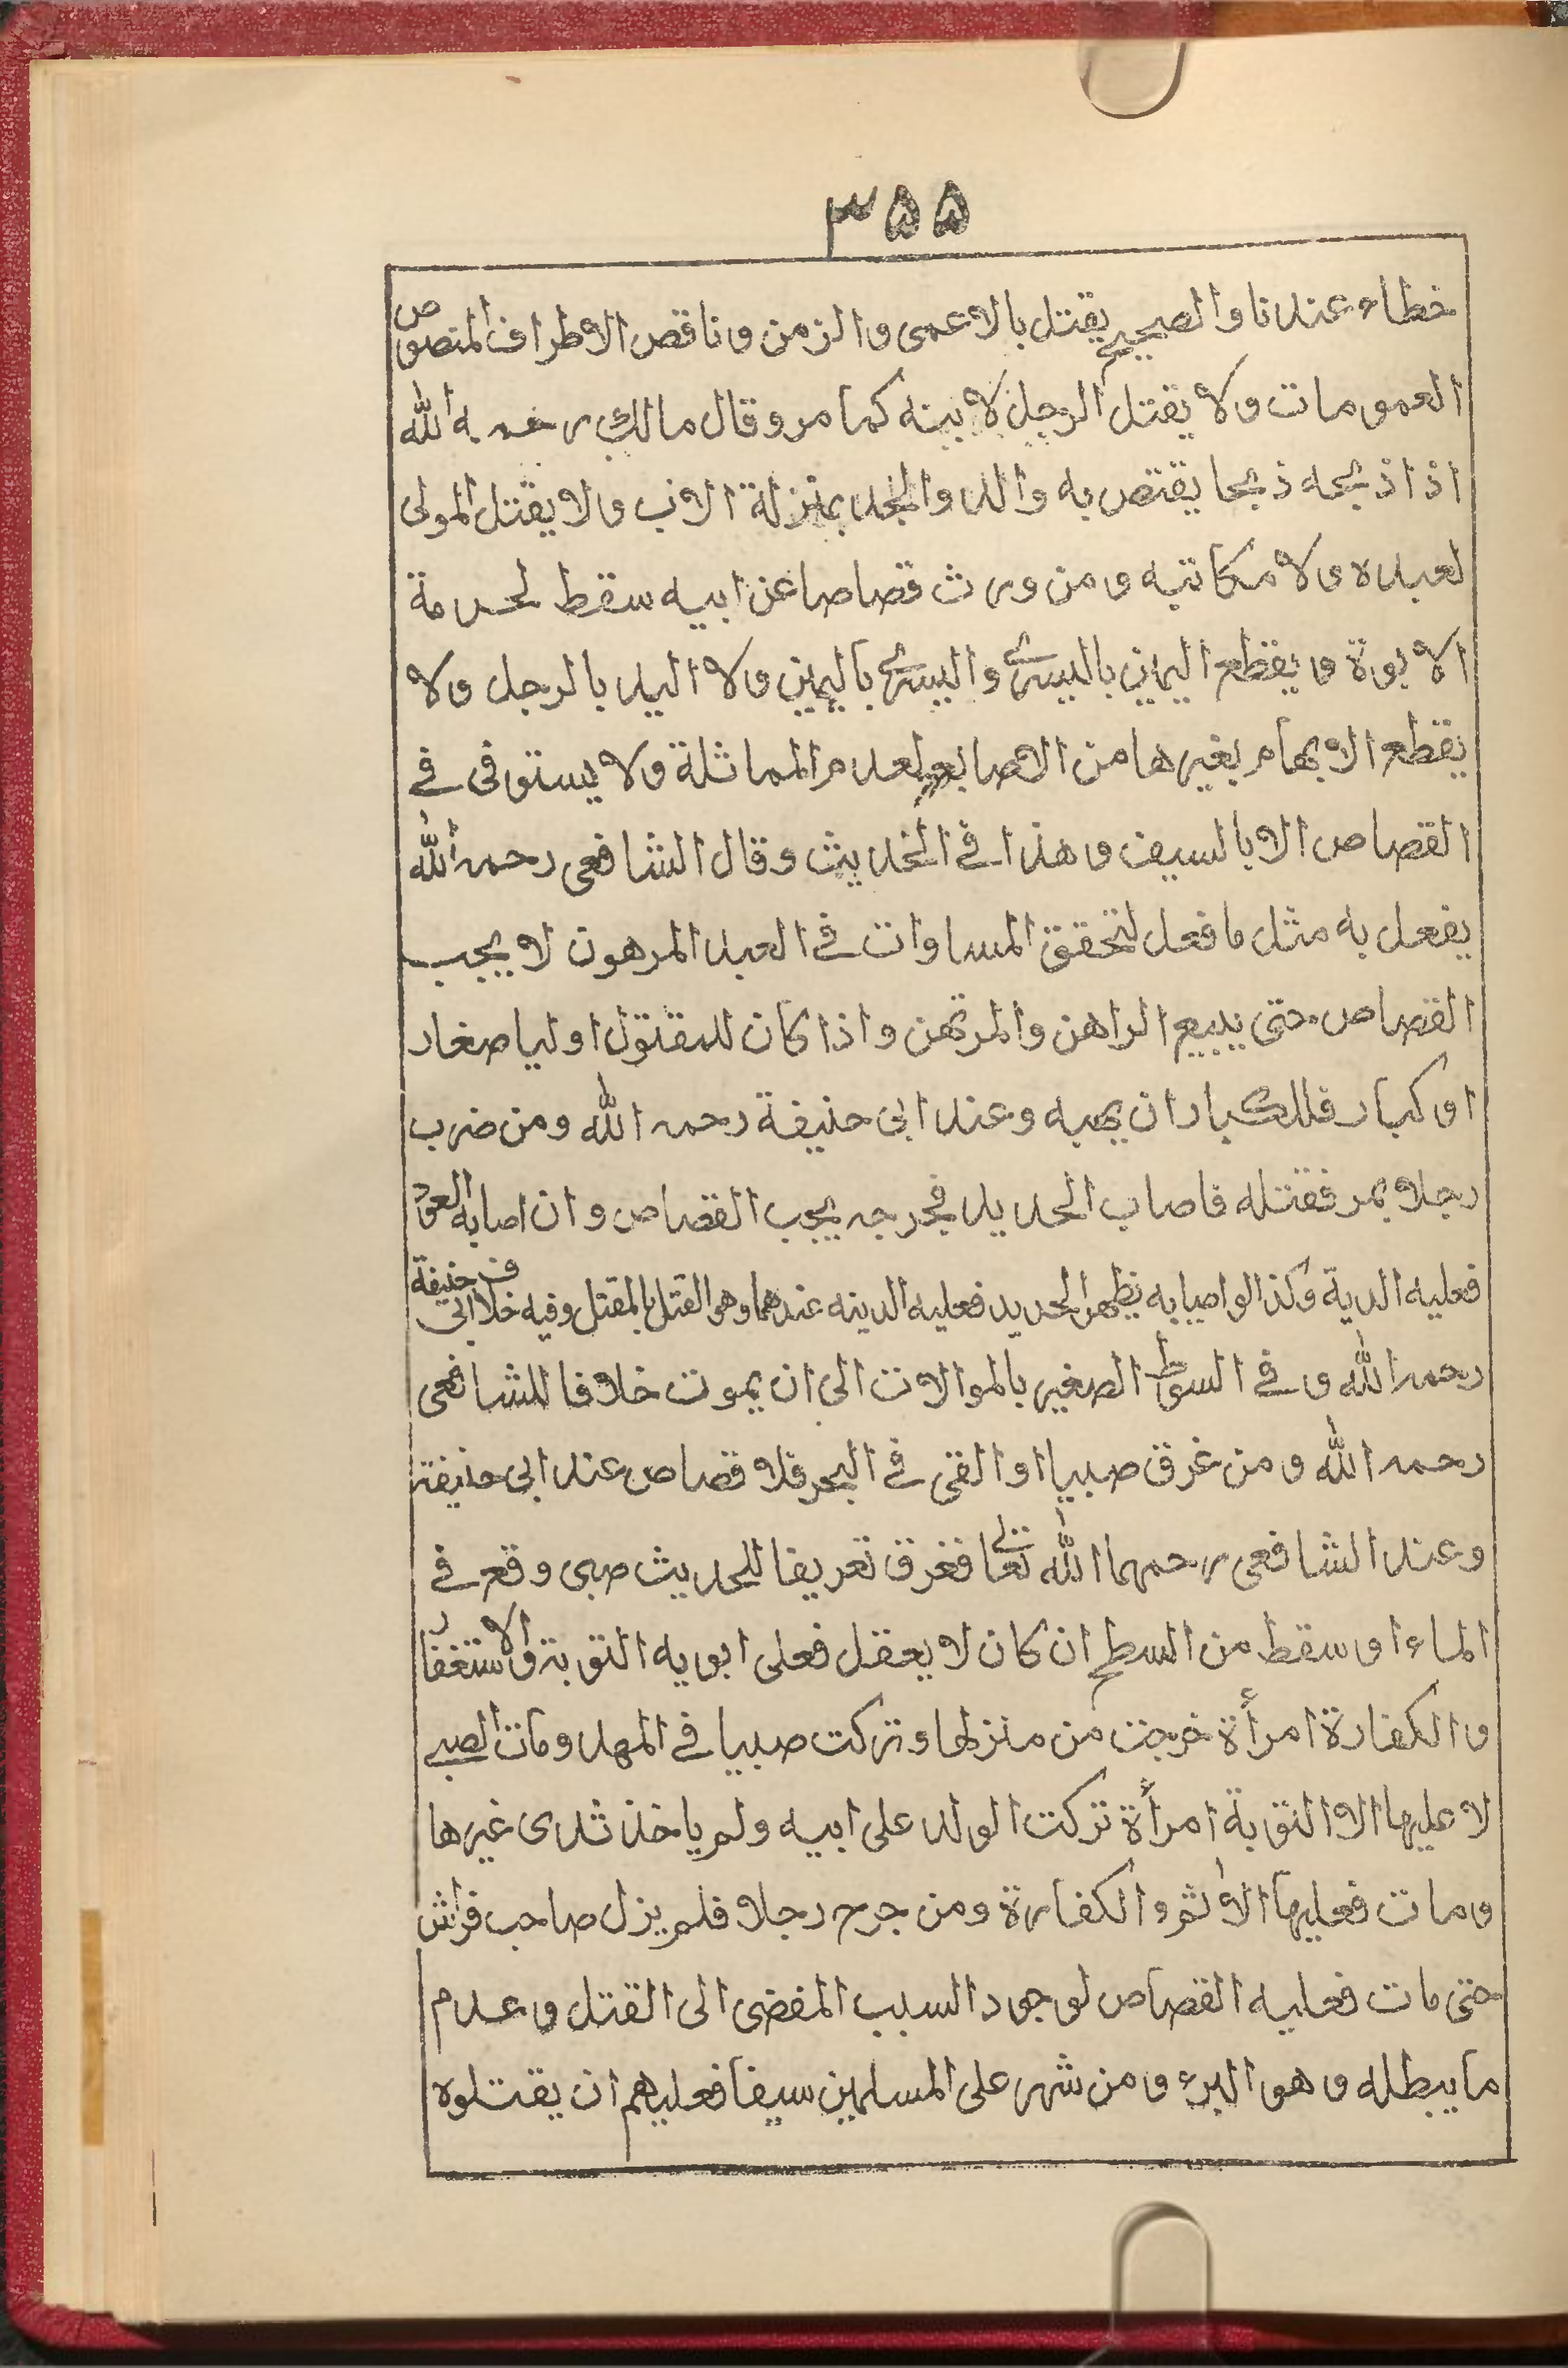 ۳۵۵
خطاء عندنا والصحيح يقتل بالاعمى والزمن وناقص الاطراف المنصوص
العمومات ولا يقتل الرجل لابينه كما مر وقال مالك رحمه الله
اذا ذبحه ذبحا يقتص به والد والجد بمنزلة الاب ولا يقتل المولى
لعبده ولا مكاتبه ومن ورث قصاصا عن ابيه سقط لحرمة
الابوة ويقطع اليمين باليسرى واليسرى باليمين ولا اليد بالرجل ولا
يقطع الابهام بغيرها من الاصابع لعدم المماثلة ولا يستوفى في
القصاص الا بالسيف وهذا في الحديث وقال الشافعى رحمه الله
يفعل به مثل ما فعل لتحقق المساوات في العبد المرهون لا يجب
القصاص حتى يبيع الراهن والمرتهن واذا كان للمقتول اوليا صغار
او كبار فللكبار ان يهبه وعند ابى حنيفة رحمه الله ومن ضرب
رجلا بمر فقتله فاصاب الحديد فجرحه يجب القصاص وان اصابه العود
فعليه الدية وكذا لو اصابه بظهر الحديد فعليه الدينه عندهما وهو القتل بالمقتل وفيه خلاف ابى حنيفة
رحمه الله وفي السوط الصغير بالموالات الى ان يموت خلافا للشافعى
رحمه الله ومن غرق صبيا او القى في البحر فلا قصاص عند ابى حنيفة
وعند الشافعى رحمهما الله تعالى فغرق تعريفا للحديث صبى وقع في
الماء او سقط من السطح ان كان لا يعقل فعلى ابويه التوبة والاستغفار
والكفارة امرأة خرجت من منزلها وتركت صبيا في المهد ومات الصبى
لا عليها الا التوبة امرأة تركت الولد على ابيه ولم ياخذ ثدى غيرها
ومات فعليها الاثم والكفارة ومن جرح رجلا فلم يزل صاحب فراش
حتى مات فعليه القصاص لوجود السبب المفضى الى القتل وعدم
ما يبطله وهو البرء ومن شهر على المسلمين سيفا فعليهم ان يقتلوه